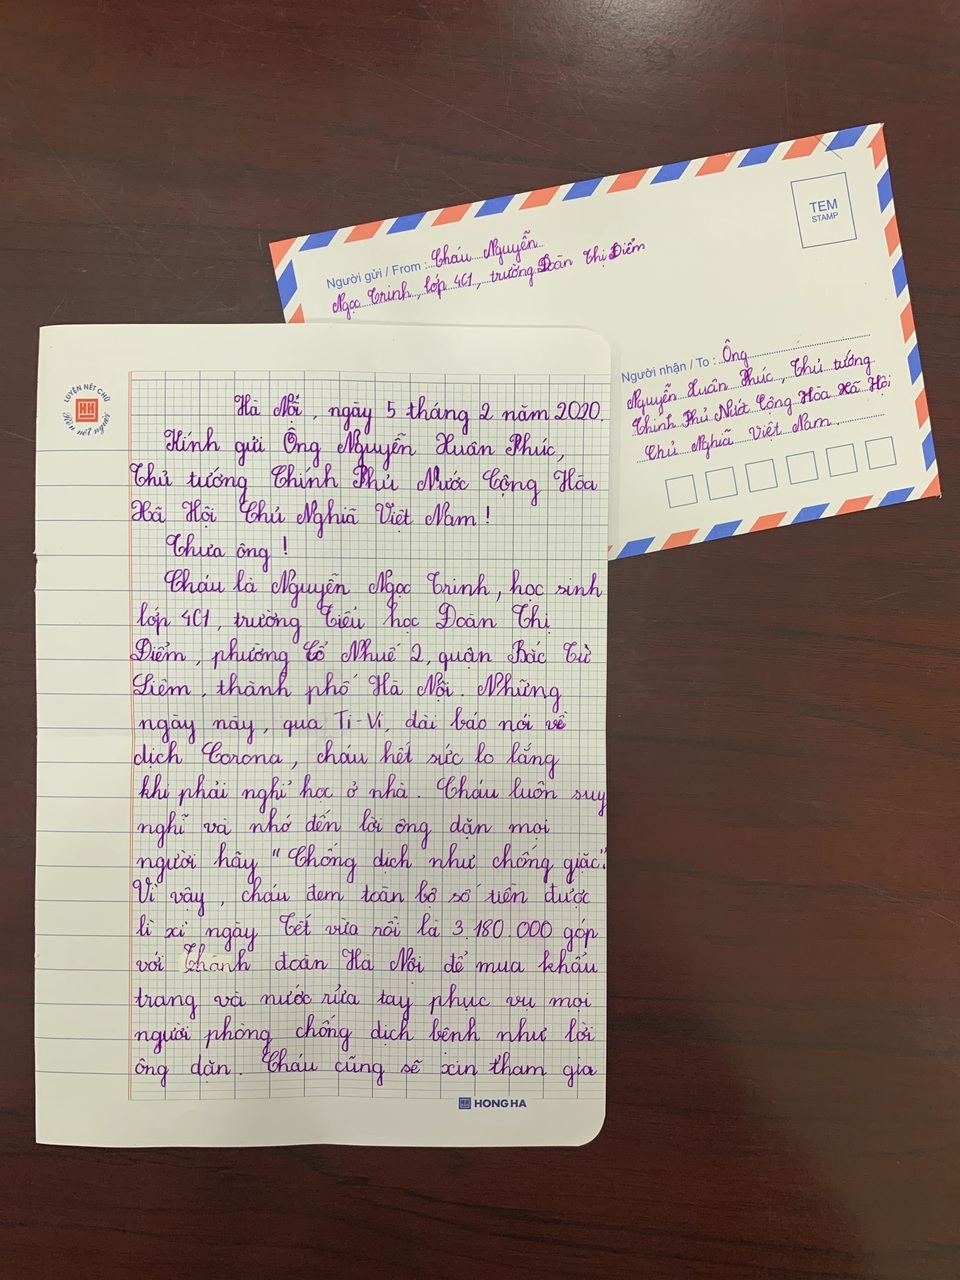 TEM
STAMP
Người gửi / From : Cháu Nguyễn
Ngọc Trinh, lớp 4C1, trường Đoàn Thị Điểm
Người nhận / To : Ông
Nguyễn Xuân Phúc, Thủ tướng
Chính Phủ Nước Cộng Hòa Xã Hội
Chủ Nghĩa Việt Nam.
LUYỆN NÉT CHỮ
Rèn nết người
Hà Nội, ngày 5 tháng 2 năm 2020.
Kính gửi Ông Nguyễn Xuân Phúc,
Thủ tướng Chính Phủ Nước Cộng Hòa
Xã Hội Chủ Nghĩa Việt Nam!
Thưa ông!
Cháu là Nguyễn Ngọc Trinh, học sinh
lớp 4C1, trường Tiểu học Đoàn Thị
Điểm, phường Cổ Nhuế 2, quận Bắc Từ
Liêm, thành phố Hà Nội. Những
ngày này, qua Ti-Vi, đài báo nói về
dịch Corona, cháu hết sức lo lắng
khi phải nghỉ học ở nhà. Cháu luôn suy
nghĩ và nhớ đến lời ông dặn mọi
người hãy "Chống dịch như chống giặc".
Vì vậy, cháu đem toàn bộ số tiền được
lì xì ngày Tết vừa rồi là 3.180.000 góp
với Thành đoàn Hà Nội để mua khẩu
trang và nước rửa tay phục vụ mọi
người phòng chống dịch bệnh như lời
ông dặn. Cháu cũng sẽ xin tham gia
HONG HA